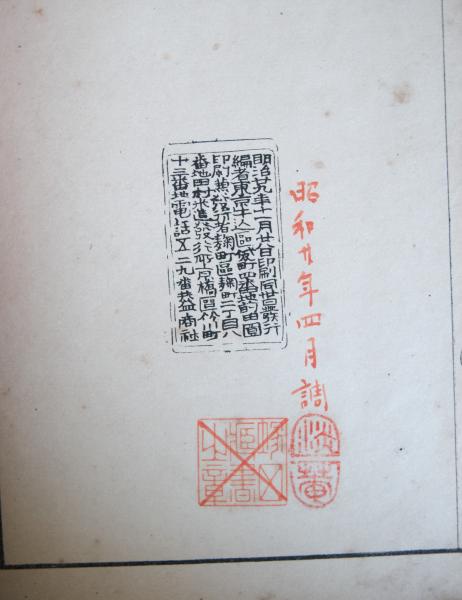 昭和廿年四月調
明治廿九年十一月廿日印刷同廿發行
編者東京牛込區袋町四番地前田園
印刷兼發行者麹町區麹町二丁目八
番地田村造發行所京橋區竹川町
十三番地電話五二九番共益商社